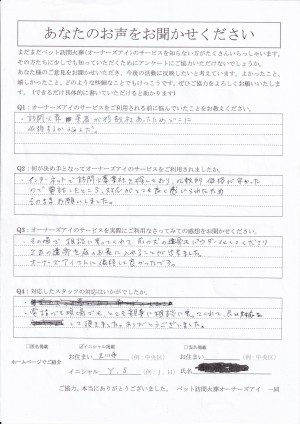 あなたのお声をお聞かせください
まだまだペット訪問火葬(オーナーズアイ)のサービスを知らない方がたくさんいらっしゃいます。
その方たちに少しでも知っていただくためにアンケートにご協力いただけないでしょうか。
あなた様のご意見をお聞かせいただき、今後の活動に反映したいと考えています。よかったこと、
嬉しかったこと、どのような些細なことでもけっこうです。ぜひご協力をよろしくお願いいたします。
(できるだけ具体的に書いていただけると助かります)
Q1：オーナーズアイのサービスをご利用される前に悩んでいたことをお教えください。
・訪問火葬業者が複数社あったためどこに
依頼するか悩んだ。
Q2：何が決め手となってオーナーズアイのサービスをご利用されましたか。
・インターネットで訪問火葬業者を探しており、比較的価格が安かった
ので電話したところ、対応がとても良く感じられたため
そのままお願いしました。
Q3：オーナーズアイのサービスを実際にご利用なさってみての感想をお聞かせください。
・その場で相談に乗ってくれて
2匹の遺骨を
オーナーズアイさんに依頼して良かったです。
Q4：対応したスタッフの対応はいかがでしたか。
・電話でも現場でも、とても親身に相談に乗ってくれて、
して頂きました。ありがとうございました。
ホームページでご紹介
□匿名掲載
☑イニシャル掲載
□実名掲載
お住まい 立川市 (例：中央区)
お住まい (例：中央区)
イニシャル Y.S (例：J.H)
氏名
ご協力、本当にありがとうございました。 ペット訪問火葬オーナーズアイ 一同